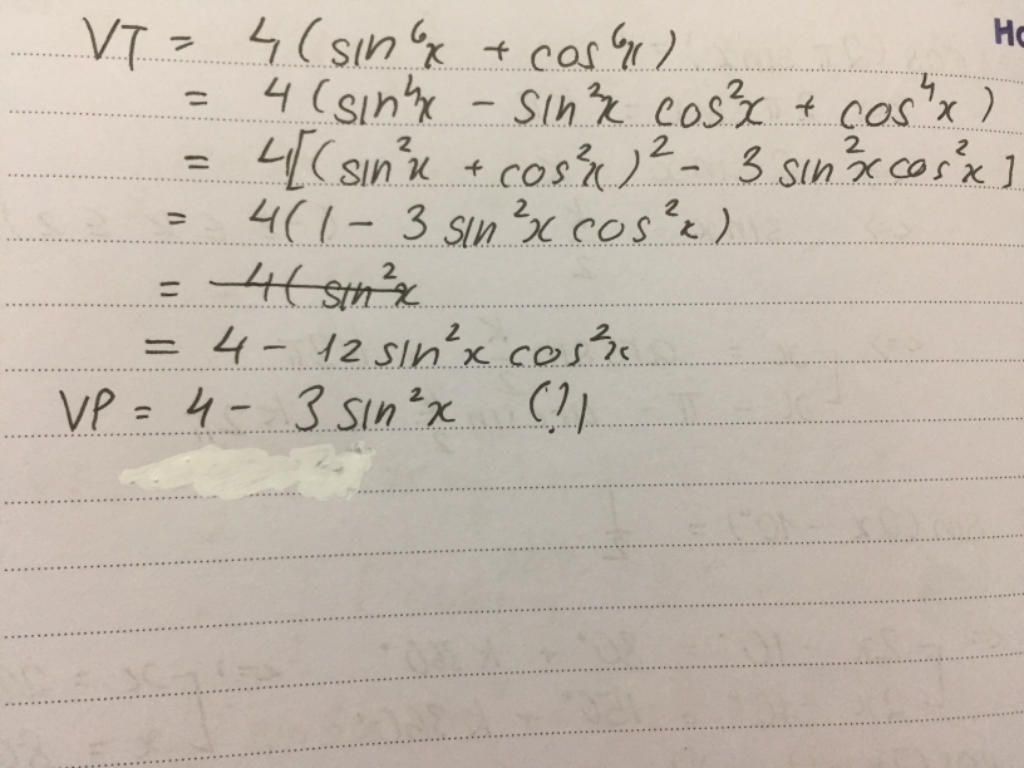 Ho
VT = 4(sin⁶x + cos⁶x)
= 4(sin⁴x - sin²x cos²x + cos⁴x)
= 4[(sin²x + cos²x)² - 3 sin²x cos²x]
= 4(1 - 3 sin²x cos²x)
= 4(sin²x
= 4 - 12 sin²x cos²x
VP = 4 - 3 sin²x (?)